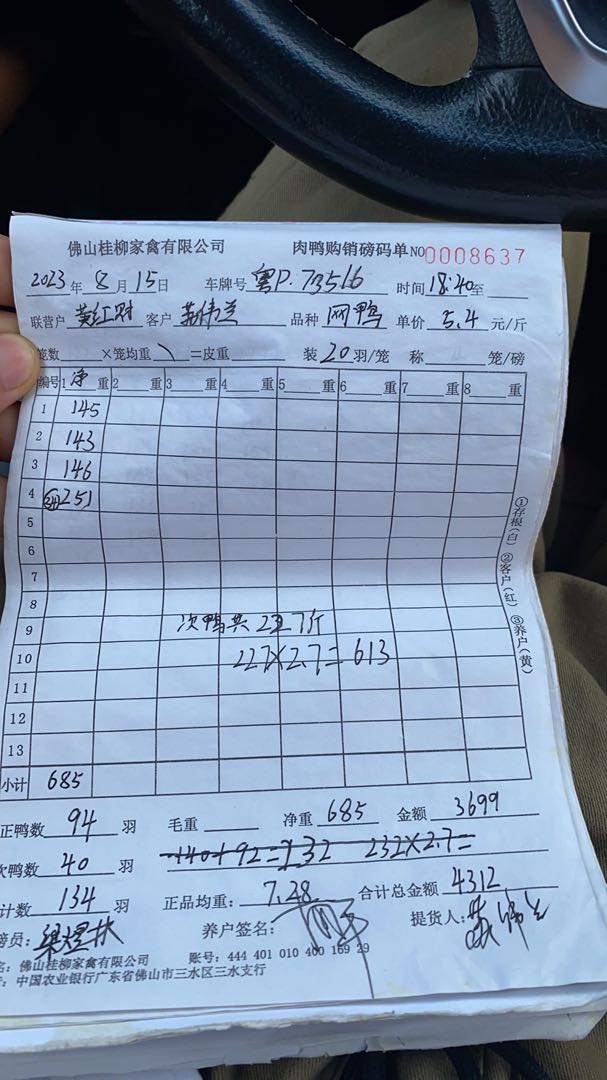 佛山桂柳家禽有限公司 肉鸭购销磅码单 NO 0008637
2023年8月15日 车牌号 粤P·73516 时间 18:40至
联营户 黄红财 客户 品种 网鸭 单价 5.4 元/斤
笼数 ×笼均重 \ =皮重 装 20 羽/笼 称 笼/磅
编号 1 净 重 2 重 3 重 4 重 5 重 6 重 7 重 8 重
1 145
2 143
3 146
4 251
5
6
7
8
9 次鸭共 227斤
10 227×2.7=613
11
12
13
小计 685
①存根(白) ②客户(红) ③养户(黄)
正鸭数 94 羽 毛重 净重 685 金额 3699
次鸭数 40 羽 140+92=232 232×2.7=
计数 134 羽 正品均重: 7.28 合计总金额 4312
磅员: 养户签名: 提货人:
名: 佛山桂柳家禽有限公司 账号: 444 401 010 400 169 29
中国农业银行广东省佛山市三水区三水支行